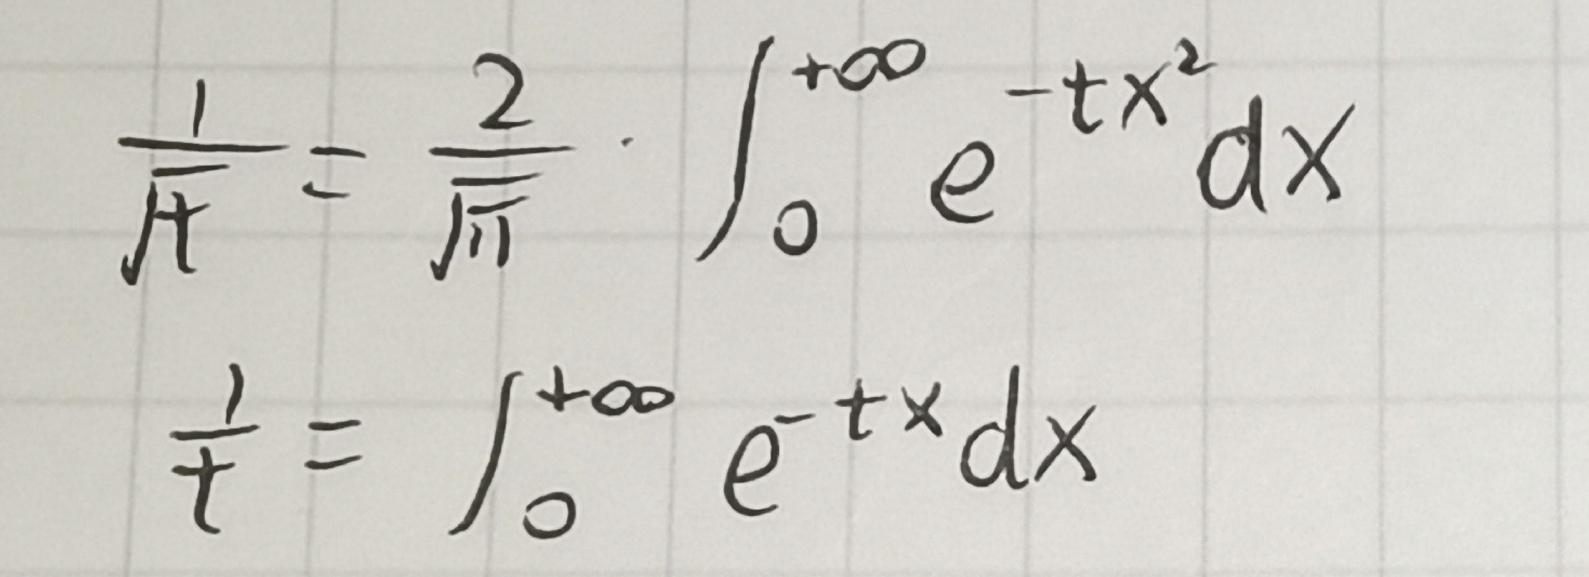 $\frac{1}{\sqrt{t}} = \frac{2}{\sqrt{\pi}} \cdot \int_{0}^{+\infty} e^{-tx^2} dx$
$\frac{1}{t} = \int_{0}^{+\infty} e^{-tx} dx$